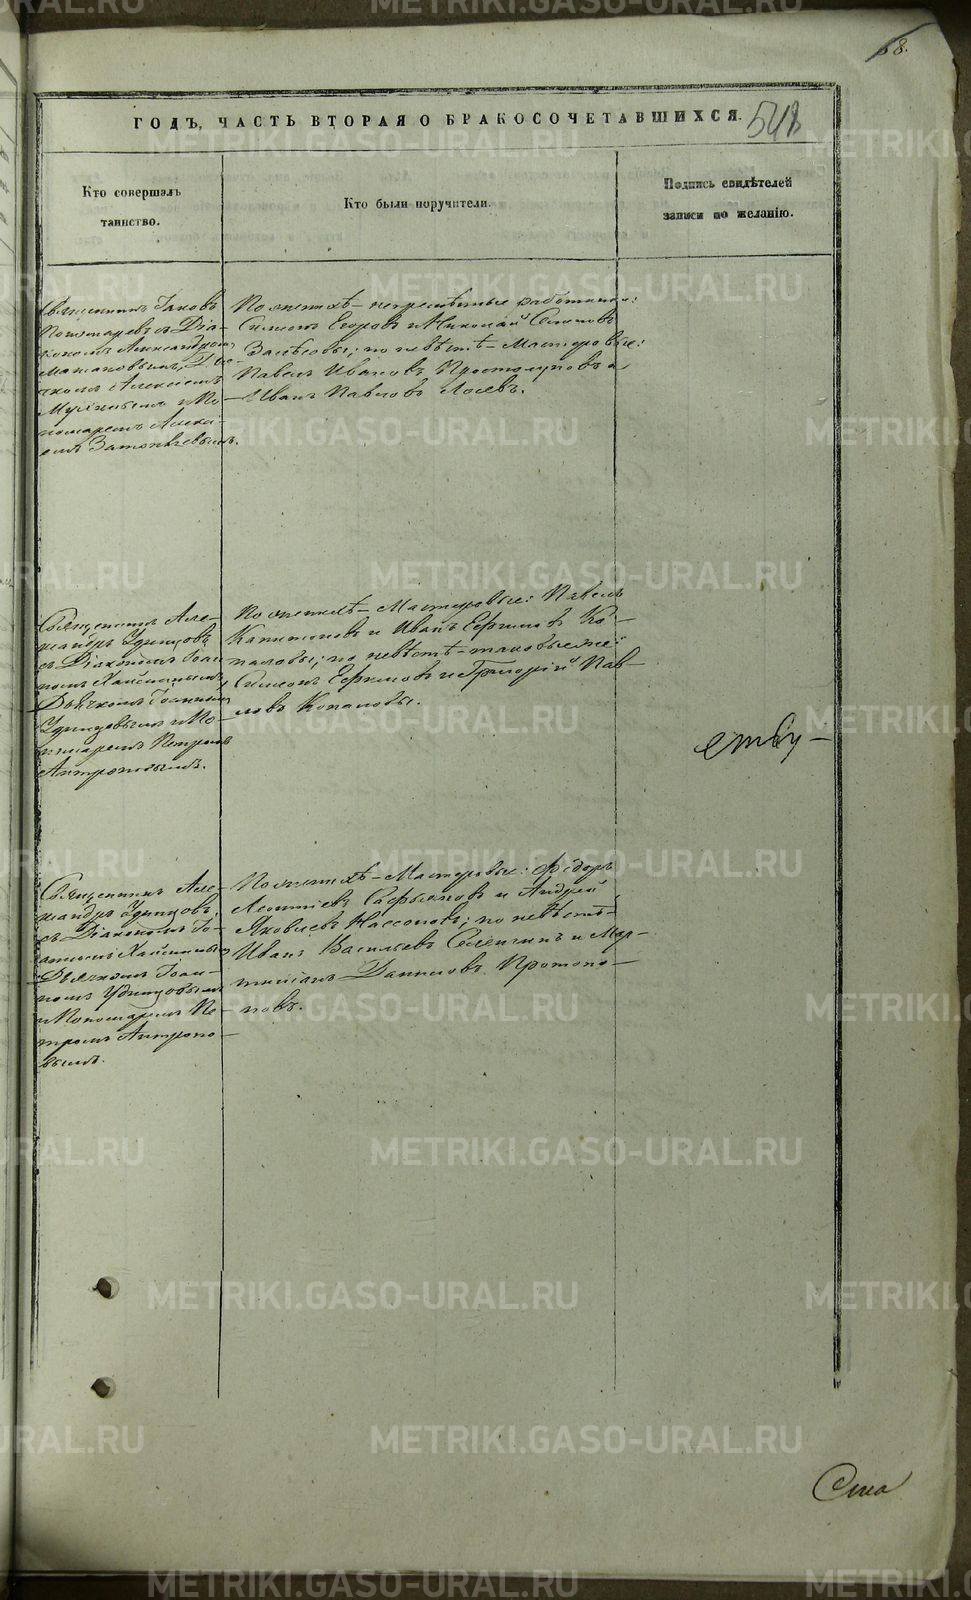 68.
ГОДЪ, ЧАСТЬ ВТОРАЯ О БРАКОСОЧЕТАВШИХСЯ.
541
Кто совершалъ
таинство.
Кто были поручители.
Подпись свидѣтелей
записи по желанію.
Священникъ Іаковъ
Пономаревъ съ Діа-
кономъ Александромъ
ячкомъ Алексѣемъ
и По-
номаремъ Алекѣ-
емъ
По женихѣ – непремѣнные работники:
Симеонъ Егоровъ и Николай Семеновъ
по невѣстѣ – Мастеровые:
Павелъ Ивановъ и
Иванъ Павловъ Лосевъ.
Священникъ Але-
ксандръ Удинцовъ
съ Діакономъ Іоан-
номъ
Дьячкомъ Іоанномъ
Удинцовымъ и По-
номаремъ Петромъ
Антроповымъ.
По женихѣ – Мастеровые: Павелъ
Капитоновъ и Иванъ Ефимовъ Ко-
паловы; по невѣстѣ – таковые же
Симеонъ Ефимовъ и Григорій Пав-
ловъ Копаловы.
Священникъ Але-
ксандръ Удинцовъ,
съ Діакономъ Іо-
анномъ
Дьячкомъ Іоан-
номъ Удинцовымъ
и Пономаремъ Пе-
тромъ Антропо-
вымъ.
По женихѣ – Мастеровые: Федоръ
Леонтіевъ Сафьяновъ и Андрей
Яковлевъ Нассоновъ; по невѣстѣ –
Иванъ Васильевъ Селенгинъ и Мар-
тиміанъ Даниловъ Протопо-
повъ.
METRIKI.GASO-URAL.RU